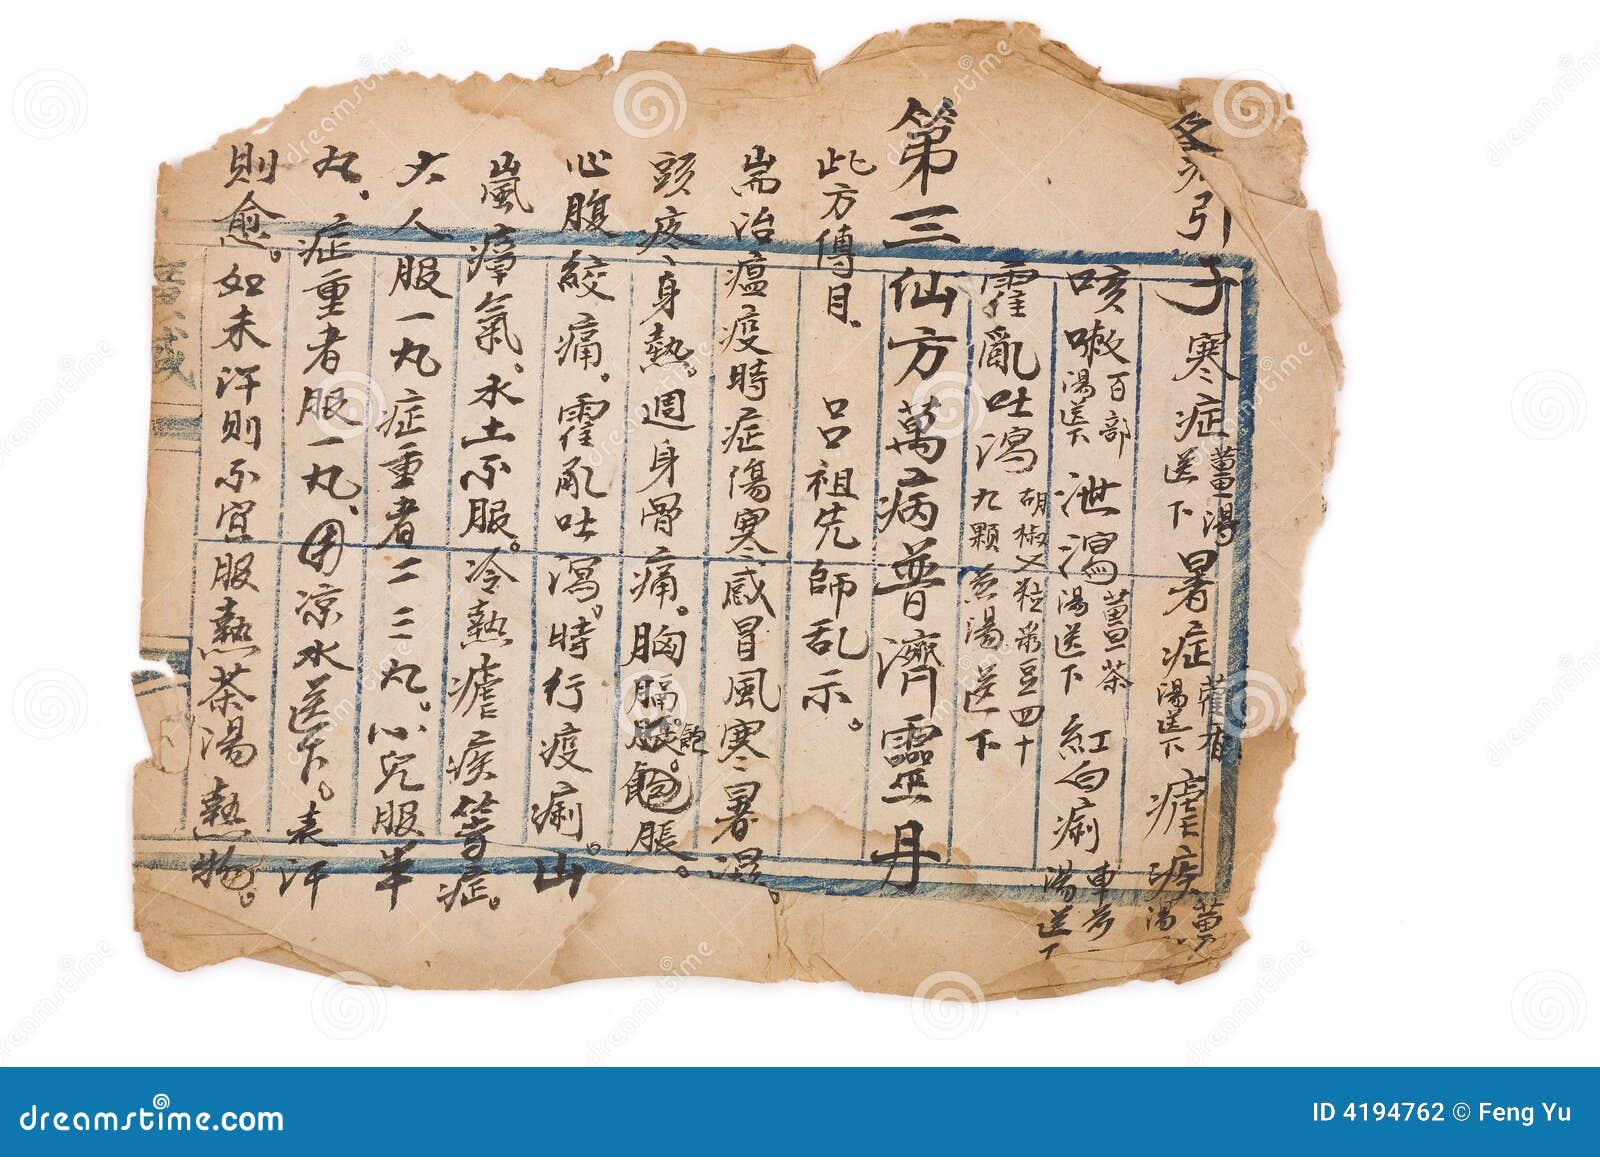 引子 寒症薑湯送下 暑症藿香湯送下 瘧疾薑湯
咳嗽百部湯送下 泄瀉薑茶湯送下 紅白痢車前湯送下
霍亂吐瀉胡椒七粒菉豆四十九顆煎湯送下
第三仙方萬病普濟靈丹
此方傳自 呂祖先師乩示。
耑治瘟疫時症傷寒感冒風寒暑濕。
頭疼身熱。週身骨痛。胸膈脹飽脹。
心腹絞痛。霍乱吐瀉。時行疫痢。山
嵐瘴氣。水土不服。冷熱瘧疾等症。
大人服一丸症重者二三丸。小兒服半
丸。症重者服一丸、用凉水送下。表汗
則愈。如未汗則不宜服熱茶湯熱物。
dreamstime.com
ID 4194762 © Feng Yu